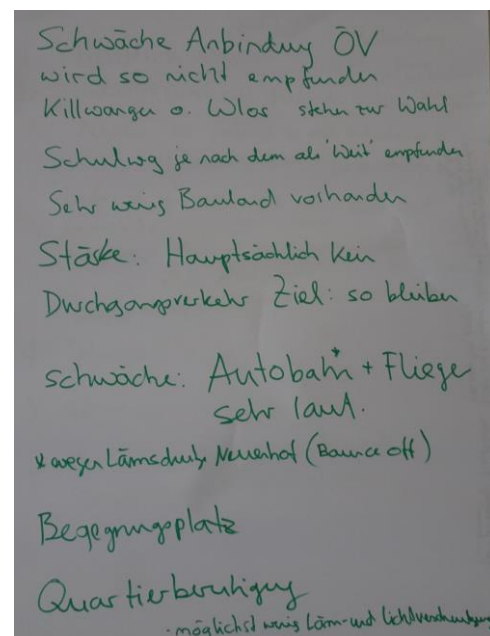 Schwäche Anbindung ÖV
wird so nicht empfunden
Killwangen o. Wlos stehn zur Wahl
Schulweg je nach dem als 'Weit' empfunden
Sehr wenig Bauland vorhanden
Stärke: Hauptsächlich kein
Durchgangsverkehr Ziel: so bleiben
schwäche: Autobahn* + Flieger
sehr laut.
* wegen Lärmschutz Neuenhof (Bounce off)
Begegnungsplatz
Quartierberuhigung
- möglichst wenig Lärm- und Lichtverschmutzung